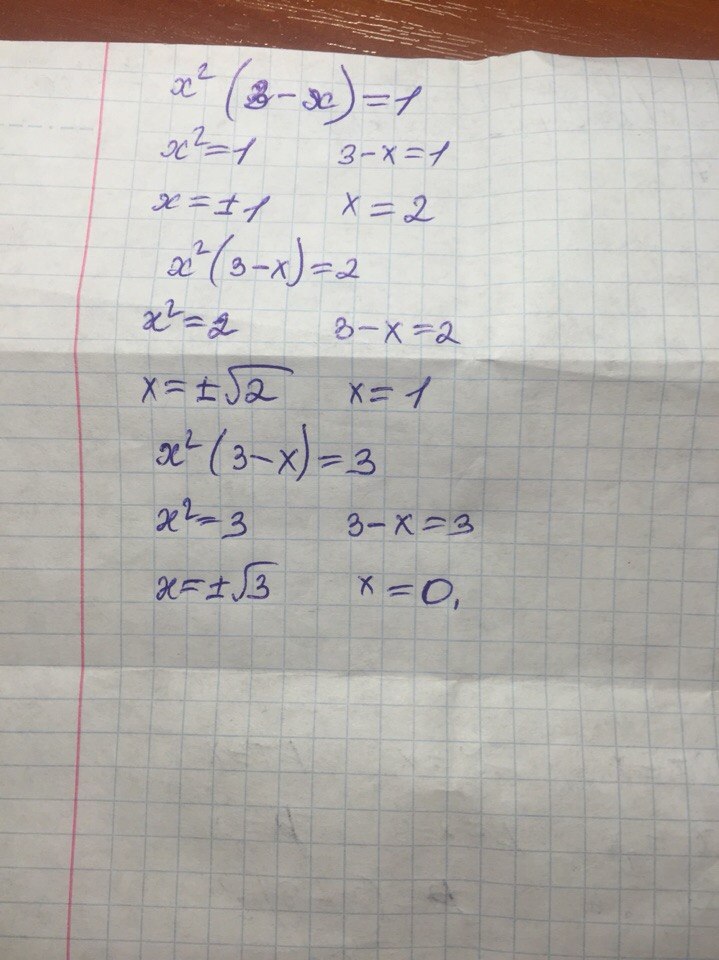 x² (3-x)=1
x²=1 3-x=1
x=±1 x=2
x²(3-x)=2
x²=2 3-x=2
x=±√2 x=1
x²(3-x)=3
x²=3 3-x=3
x=±√3 x=0,